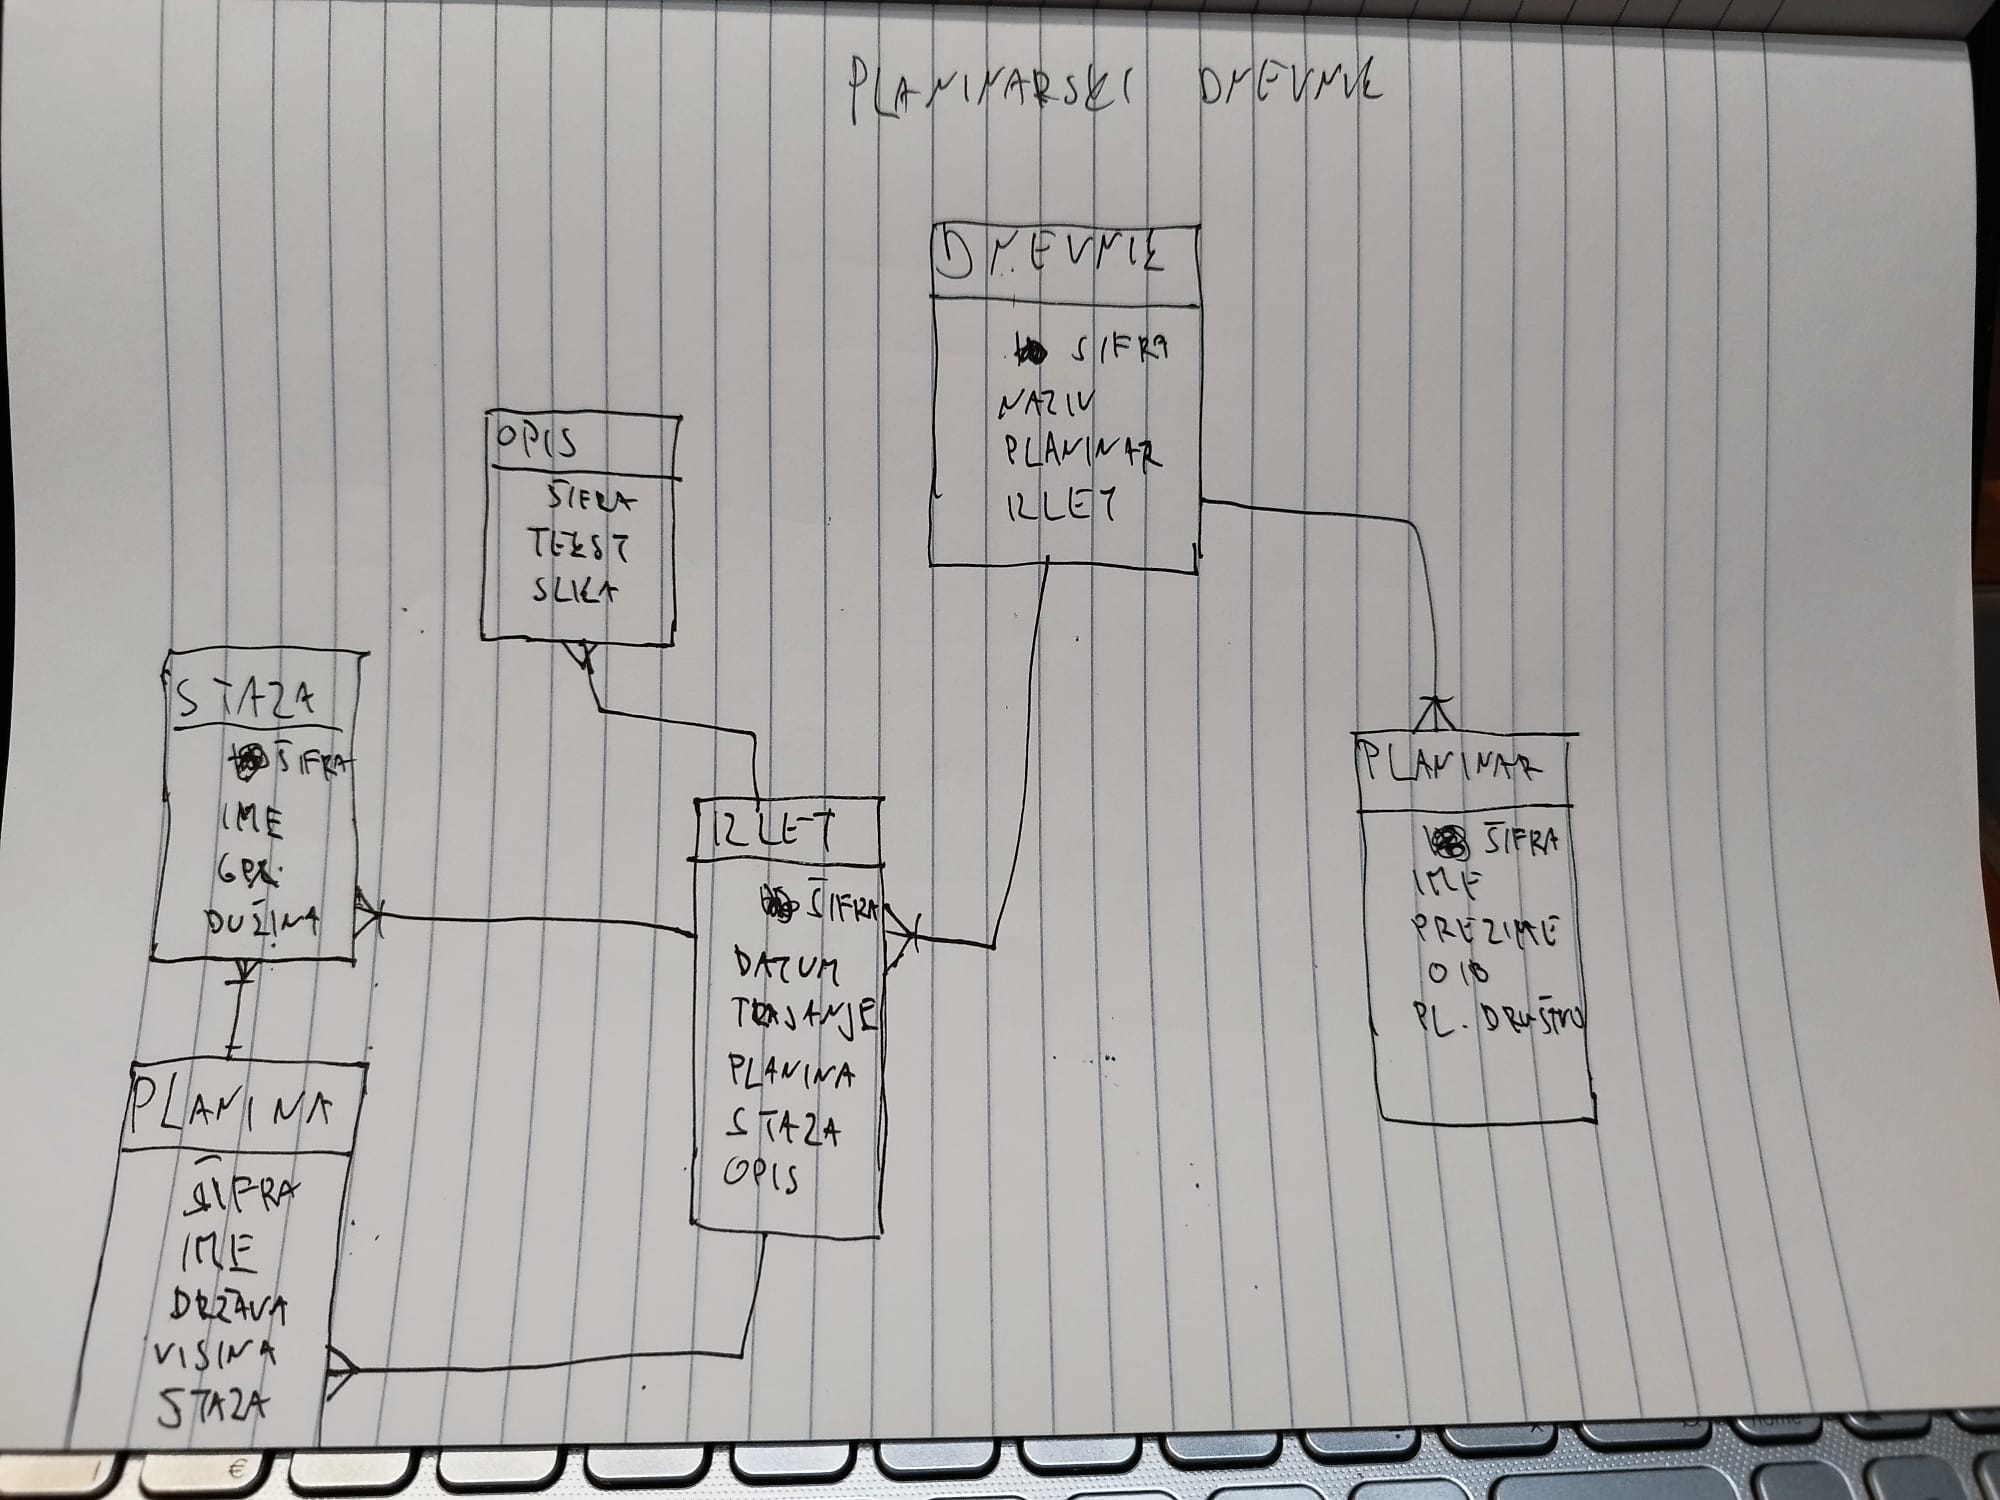 PLANINARSKI DNEVNIK
DNEVNIK
ŠIFRA
NAZIV
PLANINAR
IZLET
OPIS
ŠIFRA
TEKST
SLIKA
STAZA
ŠIFRA
IME
GPX.
DUŽINA
IZLET
ŠIFRA
DATUM
TRAJANJE
PLANINA
STAZA
OPIS
PLANINAR
ŠIFRA
IME
PREZIME
OIB
PL. DRUŠTVO
PLANINA
ŠIFRA
IME
DRŽAVA
VISINA
STAZA
€
home